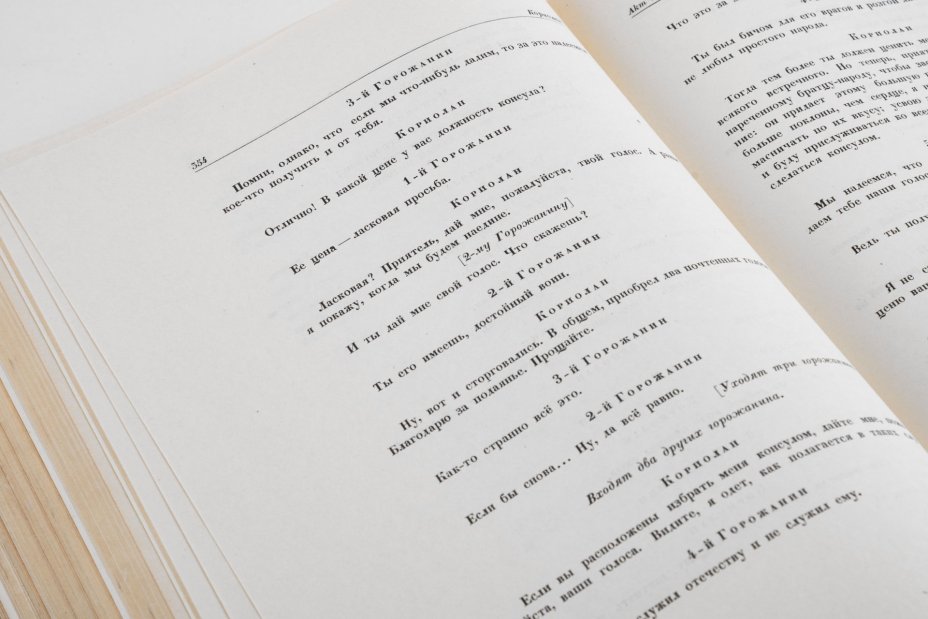 554
3-й Горожанин
Помни, однако, что если мы что-нибудь дадим, то за это надеемся
кое-что получить и от тебя.
Кориолан
Отлично! В какой цене у вас должность консула?
1-й Горожанин
Ее цена — ласковая просьба.
Кориолан
Ласковая? Приятель, дай мне, пожалуйста, твой голос. А
я покажу, когда мы будем наедине.
[2-му Горожанину]
И ты дай мне свой голос. Что скажешь?
2-й Горожанин
Ты его имеешь, достойный воин.
Кориолан
Ну, вот и сторговались. В общем, приобрел два почтенных
Благодарю за подаянье. Прощайте.
3-й Горожанин
Как-то странно всё это.
2-й Горожанин
Если бы снова... Ну, да всё равно.
[Уходят три горожанина
Входят два других горожанина.
Кориолан
Если вы расположены избрать меня консулом, дайте мне,
ваши голоса. Видите, я одет, как полагается в таких
4-й Горожанин
служил отечеству и не служил ему.
Акт
Что это за
Ты был бичом для его врагов и розгой
не любил простого народа.
Кориолан
Тогда тем более ты должен ценить
всякого встречного. Но теперь,
нареченному братцу-народу, чтобы
ние: он придает этому большую
больше поклоны, чем сердце, я
масничать по их вкусу: усвою
и буду прислуживаться ко
сделаться консулом.
Мы надеемся, что
даем тебе наши
Ведь, ты
Я не
ценю